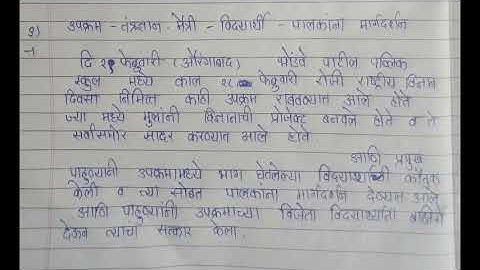 २) उपक्रम - तंत्रज्ञान - मैत्री - विद्यार्थी - पालकांना मार्गदर्शन
→ दि २९ फेब्रुवारी (औरंगाबाद) पाटील पब्लिक
स्कुल मध्ये काल २८ फेब्रुवारी रोजी राष्ट्रीय विज्ञान
दिवसा निमित्त काही उपक्रम राबवण्यात आले होते
ज्या मध्ये मुलांनी विज्ञानाची प्रोजेक्ट बनवले होते व ते
सर्वांसमोर सादर करण्यात आले होते.
आणि प्रमुख
पाहुण्यांनी उपक्रमामध्ये भाग घेतलेल्या विद्यार्थ्यांची कौतुक
केली व त्या सोबत पालकांना मार्गदर्शन देण्यात आले
आणि पाहुण्यांनी उपक्रमाच्या विजेता विद्यार्थ्यांना बक्षिसे
देऊन त्यांचा सत्कार केला.